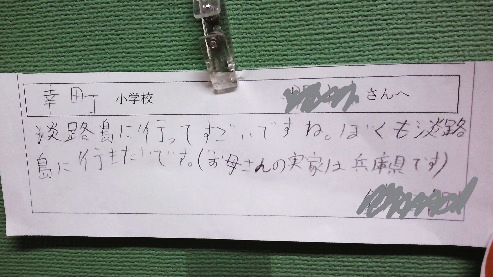 幸町 小学校 さんへ
淡路島に行ってすごいですね。ぼくも淡路
島に行きたいです。(お母さんの実家は兵庫県です)